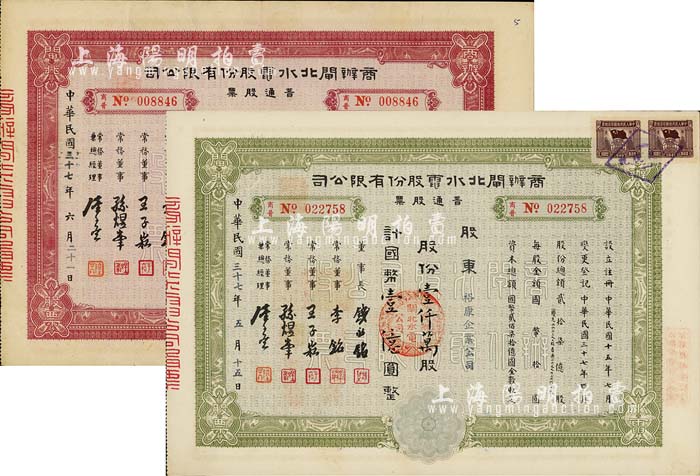 5
商辦閘北水電股份有限公司
普通股票
商普 No 008846
商普 No 008846
常務董事
常務董事
常務董事兼總經理
王子崧
孫煜峯
中華民國三十七年六月二十一日
上海陽明拍賣
www.yangmingauction.com
商辦閘北水電股份有限公司
普通股票
商普 No 022758
商普 No 022758
設立註冊中華民國十五年七月
變更登記中華民國三十七年
股份總額貳拾柒億股
每股金額國幣拾圓
資本總額國幣貳佰柒拾億圓金數收足
股東
裕康企業公司
股份壹仟萬股
計國幣壹億圓整
董事長
常務董事 李銘
常務董事 王子崧
常務董事 孫煜峯
常務董事兼總經理
中華民國三十七年五月十五日
上海陽明拍賣
www.yangmingauction.com
上海陽明拍賣
www.yangmingauction.com